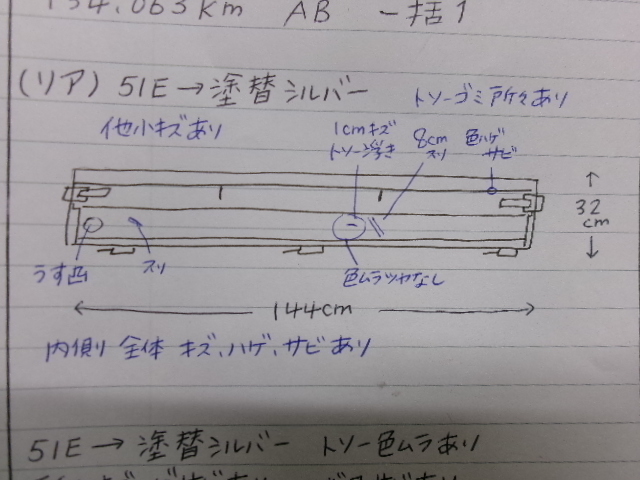 134,063km AB 一括1
(リア) 51E→塗替シルバー
トソーゴミ所々あり
他小キズあり
1cmキズ
トソー浮き
8cm
スリ
色ハゲ
サビ
32
cm
うす凸
スリ
色ムラツヤなし
144cm
内側 全体 キズ、ハゲ、サビあり
51E→塗替シルバー トソー色ムラあり